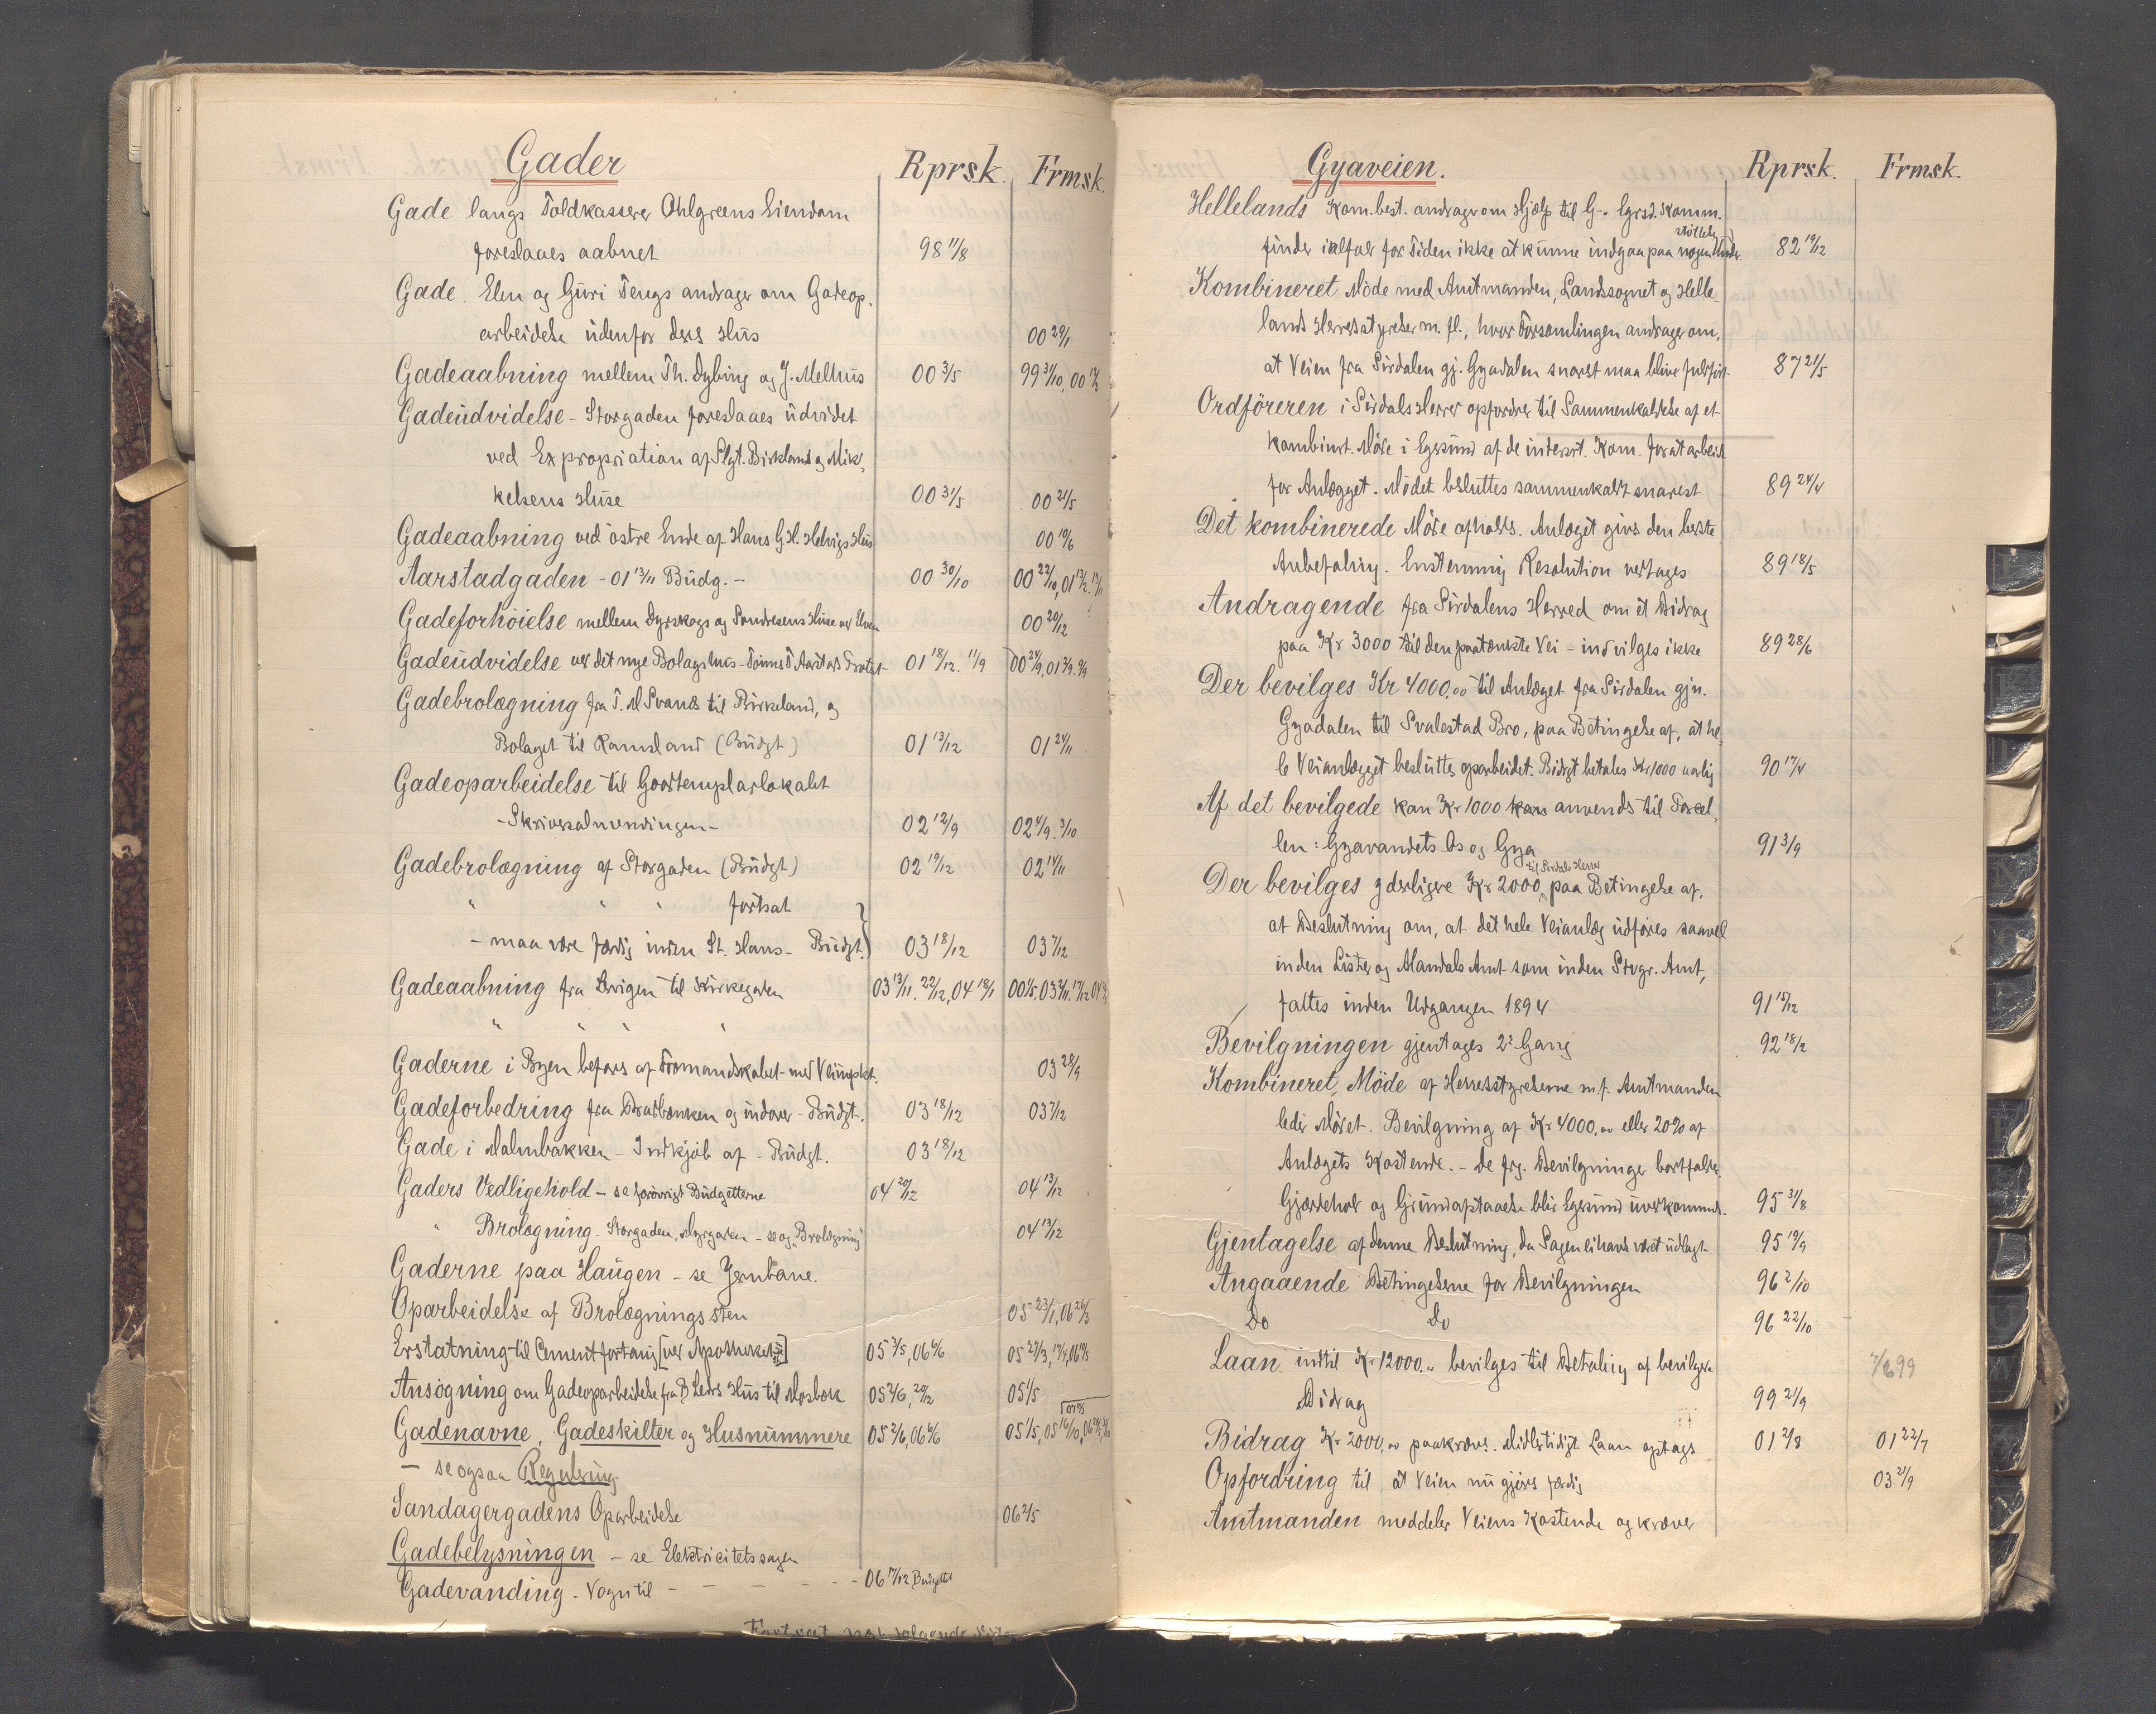 Gader
Rprsk. Frmsk.
Gade langs Toldkasserer Ohlgreens Eiendom
foreslaaes aabnet 98 11/8
Gade. Elen og Guri Tengs andrager om Gadeop-
arbeidelse udenfor deres Hus 00 29/1
Gadeaabning mellem Th. Dybing og J. Melhus 00 3/5 99 31/10, 00
Gadeudvidelse - Storgaden foreslaaes udvidet
ved Expropriation af Slgt. Birkland og Mik-
kelsens Huse 00 31/5 00 21/5
Gadeaabning ved østre Ende af Hans Hus 00 19/6
Aarstadgaden - 01 13/11 Budg. - 00 30/10 00 22/10, 01
Gadeforhøielse mellem Dyrskogs og Huse ved Elven 00 20/12
Gadeudvidelse ved det nye Bolagshus - 01 18/12. 11/9 00 24/9, 01
Gadebrolægning fra T. M Svanes til Birkeland, og
Bolaget til Ramsland (Budgt) 01 13/12 01 24/11
Gadeoparbeidelse til Goodtemplarlokalet
- Skriversalmendingen - 02 12/9 02 4/9. 3/10
Gadebrolægning af Storgaden (Budgt) 02 19/12 02 14/11
" " " fortsat
- maa være færdig inden St. Hans - Budgt. 03 18/12 03 7/12
Gadeaabning fra til Kirkegaden 03 13/11. 22/12, 04 18/1
" " " "
Gaderne i Byen befares af Formandskabet med Veiinspkt. 03 28/9
Gadeforbedring fra og indover - Budgt. 03 18/12 03 7/12
Gade i Malmbakken - Indkjøb af - Budgt. 03 18/12
Gaders Vedligehold - se forøvrigt Budgetterne 04 20/12 04 13/12
" Brolægning - Storgaden, Myrgaden - se og "Brolægning" 04 13/12
Gaderne paa Haugen - se Jernbane.
Oparbeidelse af Brolægningssten 05 23/1, 06 26/3
Erstatning til Cementfortaug [ved Apotheket] 05 3/5, 06 6/6 05 27/3,
Ansøgning om Gadeoparbeidelse fra Hus til Mosbæk 05 2/6, 20/12 05 1/5
Gadenavne, Gadeskilter og Husnummere 05 2/6, 06 6/6 05 1/5, 05 16/10,
- se ogsaa Regulering
Sandagergadens Oparbeidelse 06 2/5
Gadebelysningen - se Elektricitetssagen
Gadevanding - Vogn til - - - - - 06 7/12 Budgettet
Fortsat næst følgende Side
Gyaveien.
Rprsk. Frmsk.
Hellelands Kom.best. andrager om Hjælp til G-. Egrsd. Komm.
finder ialfald for Tiden ikke at kunne indgaa paa nogen Understøttelse 82 19/12
Kombineret Møde med Amtmanden, Landssognet og Helle-
lands Herredsstyrelser m. fl., hvor Forsamlingen andrager om,
at Veien fra Sirdalen gj. Gyadalen snarest maa blive fuldført 87 21/5
Ordføreren i Sirdals Herred opfordrer til Sammenkaldelse af et
kombinrt. Møde i Egersund af de intersrt. Kom. for at arbeide
for Anlægget. Mødet besluttes sammenkaldt snarest 89 24/4
Det kombinerede Møde afholdes. Anlæget gives den beste
Anbefaling. Enstemmig Resolution vedtages 89 18/5
Andragende fra Sirdalens Herred om et Bidrag
paa Kr 3000 til den paatænkte Vei - indvilges ikke 89 28/6
Der bevilges Kr 4000,00 til Anlæget fra Sirdalen gjn.
Gyadalen til Svalestad Bro, paa Betingelse af, at he-
le Veianlægget besluttes oparbeidet. Bidrgt betales Kr 1000 aarlig 90 17/4
Af det bevilgede kan Kr 1000 kan anvendes til Parcel-
len: Gyavandets Os og Gya 91 3/9
Der bevilges yderligere Kr 2000 til Sirdals Herred paa Betingelse af,
at Beslutning om, at det hele Veianlæg udføres saavel
inden Lister og Mandals Amt som inden Stvgr. Amt,
fattes inden Udgangen 1894 91 15/12
Bevilgningen gjentages 2den Gang 92 18/2
Kombineret Møde af Herredsstyrelserne m. f. Amtmanden
leder Mødet. Bevilgning af Kr 4000,00 eller 20% af
Anlægets Kostende. - De frg. Bevilgninger bortfalder.
Gjærdehold og Grundafstaaelse blir Egersund uvedkommd. 95 31/8
Gjentagelse af denne Beslutning, da Sagen ei havde været udlagt 95 19/9
Angaaende Betingelserne for Bevilgningen 96 2/10
Do Do 96 22/10
Laan indtil Kr 12000,00 bevilges til Betaling af bevilgede 7/6 99
Bidrag 99 21/9
Bidrag Kr 2000,00 paakræves. Midlertidigt Laan optages 01 2/8 01 22/7
Opfordring til, at Veien nu gjøres færdig 03 2/9
Amtmanden meddeler Veiens Kostende og kræver